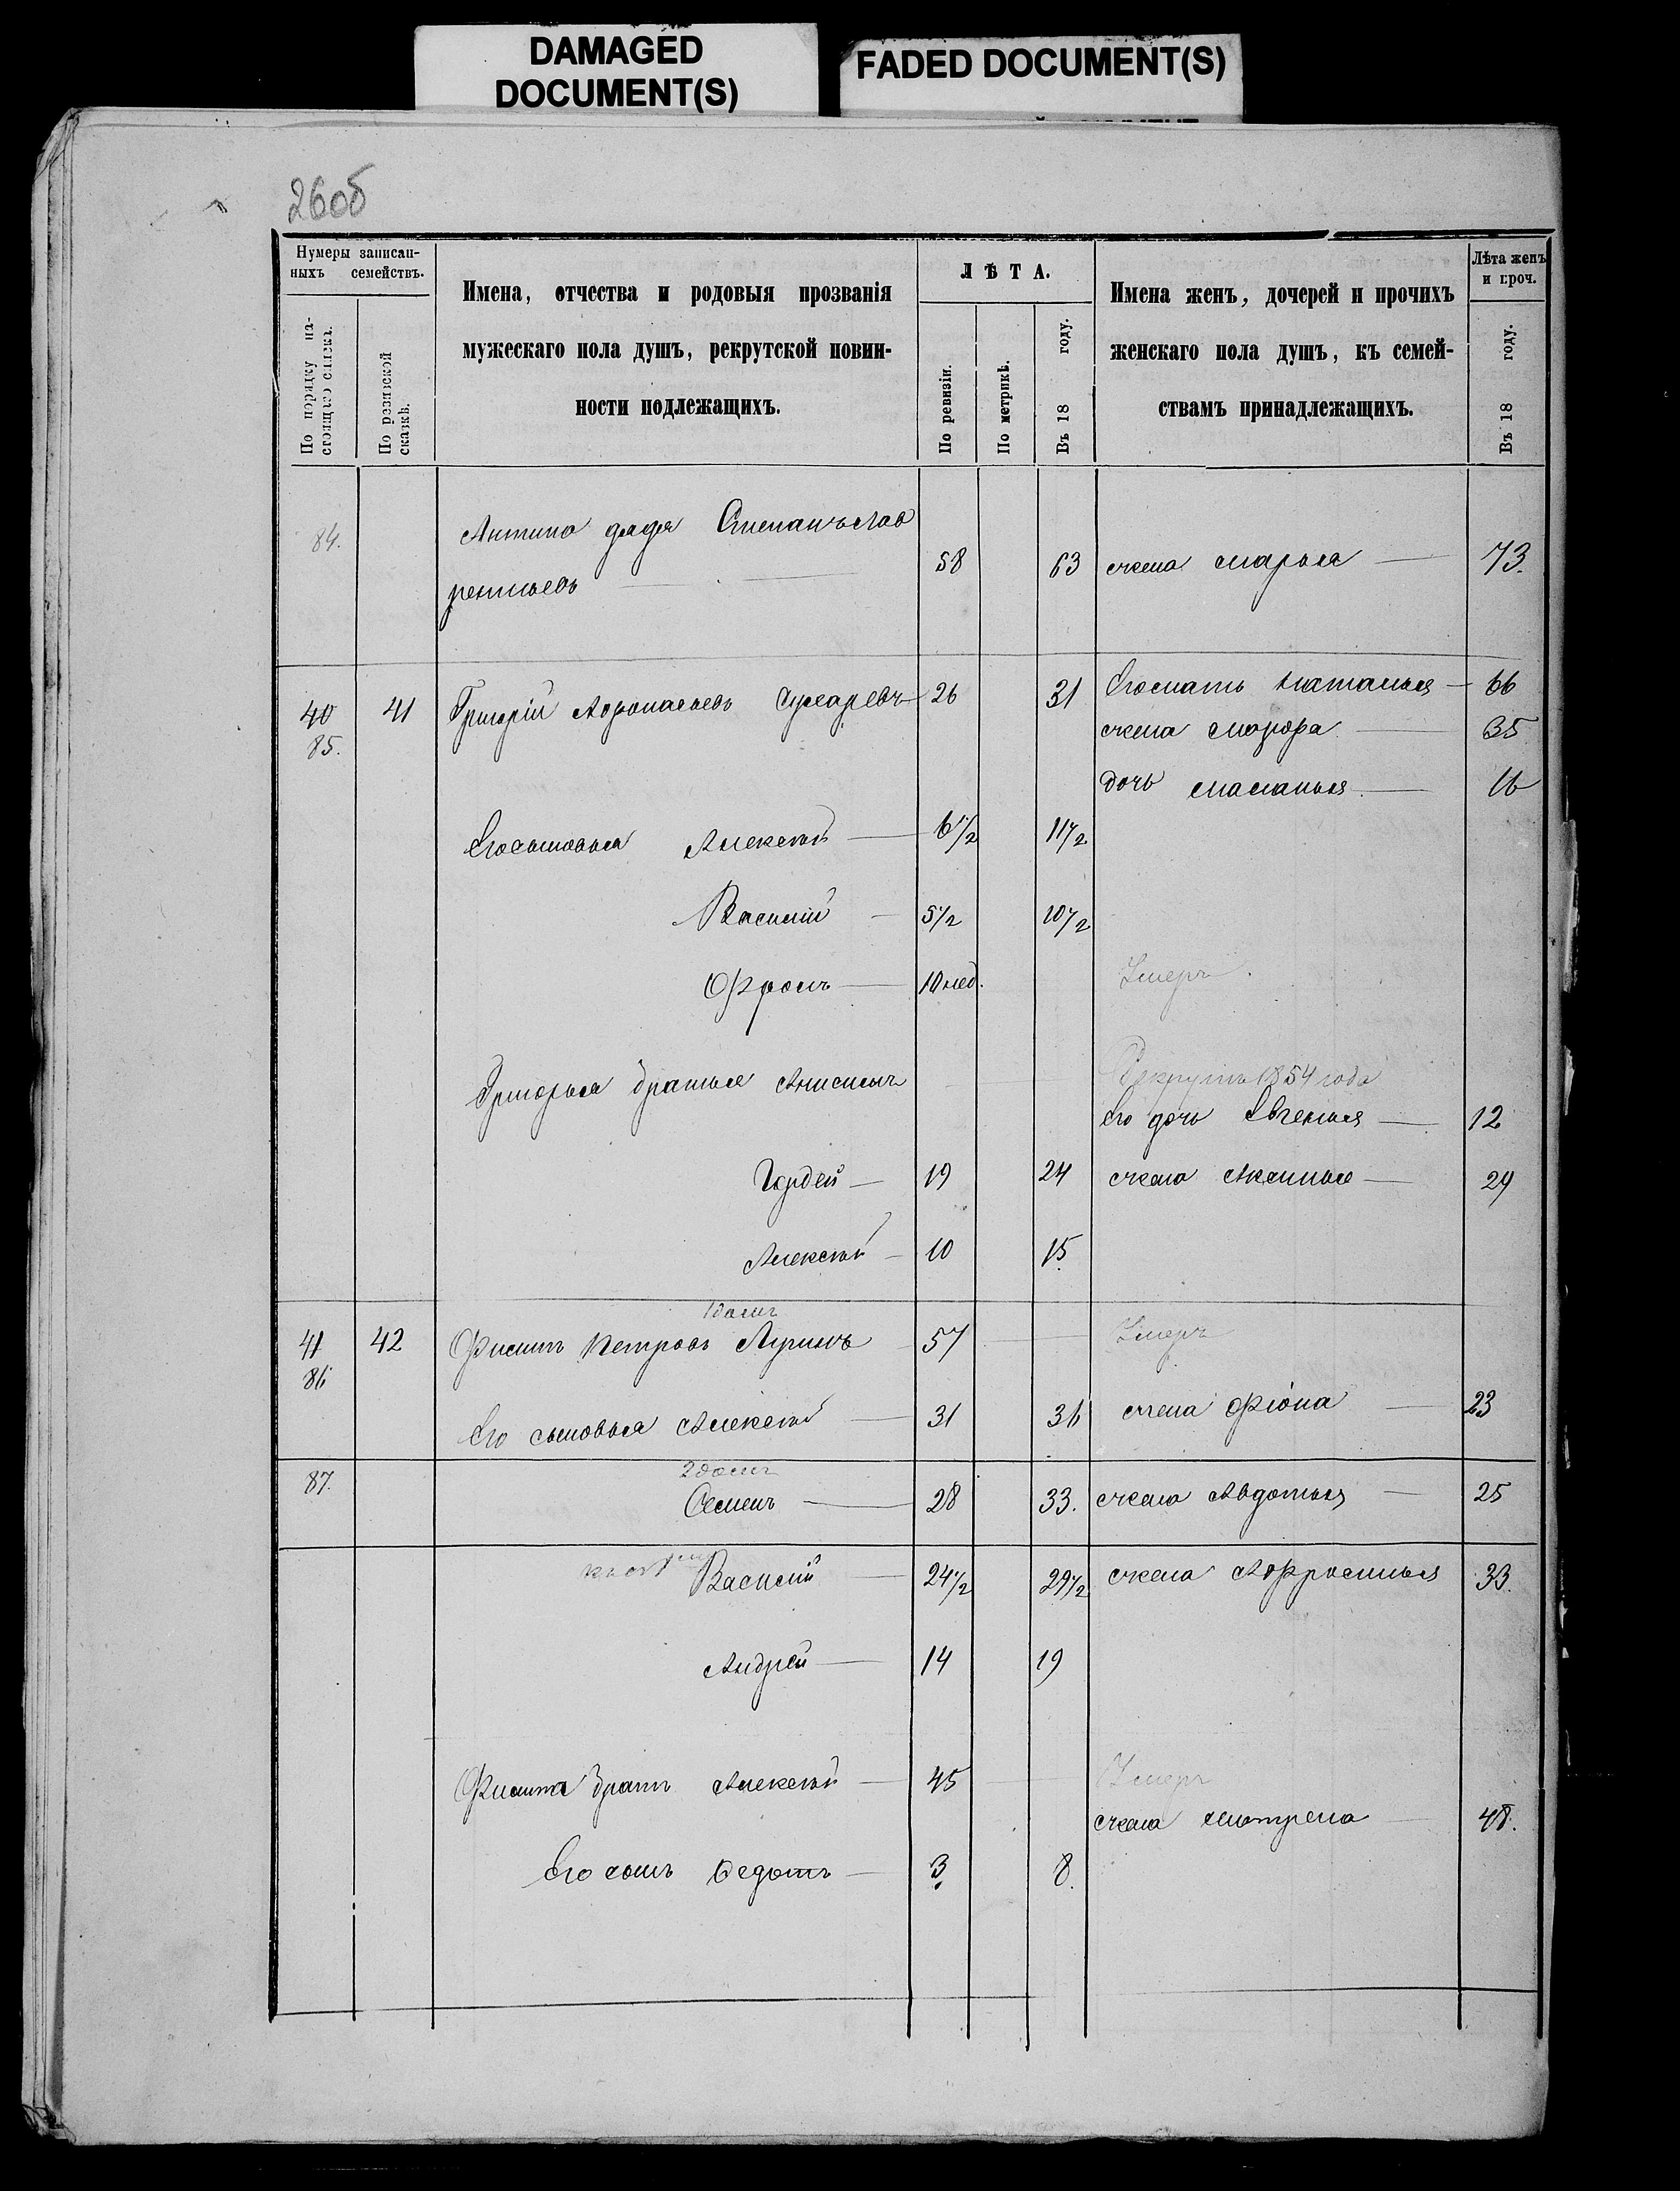 DAMAGED
DOCUMENT(S)
FADED DOCUMENT(S)
26об
Нумеры записан-
ныхъ семействъ.
По порядку на-
стоящаго списка.
По ревизской
сказкѣ.
Имена, отчества и родовыя прозванія
мужескаго пола душъ, рекрутской повин-
ности подлежащихъ.
ЛѢТА.
По ревизіи.
По метрикѣ.
Въ 18 году.
Имена женъ, дочерей и прочихъ
женскаго пола душъ, къ семей-
ствамъ принадлежащихъ.
Лѣта женъ
и проч.
Въ 18 году.
84. Антипа дядя Степанъ Лав
рентьевъ 58 63 жена Марья 73.
40 41 Григорій Афонасьевъ 26 31 Его мать Наталья 66
85. жена 35
дочь Маланья 16
Его сыновья Алексѣй 6 1/2 11 1/2
Василій 5 1/2 10 1/2
Фролъ 10 нед. Умеръ.
Григорья братья Анисимъ Рекрутъ 1854 года
Его дочь Евгенья 12
Гордей 19 24 жена Аксинья 29
Алексѣй 10 15
1 домъ
41 42 Филипъ Петровъ 57 Умеръ
86
Его сыновья Алексѣй 31 36 жена Фіона 23
2 домъ
87. Семенъ 28 33. жена Авдотья 25
Василій 24 1/2 29 1/2 жена Аффросинья 33.
Андрей 14 19
Филипа братъ Алексѣй 45 Умеръ
жена Матрена 48.
Его сынъ Федотъ 3 8.